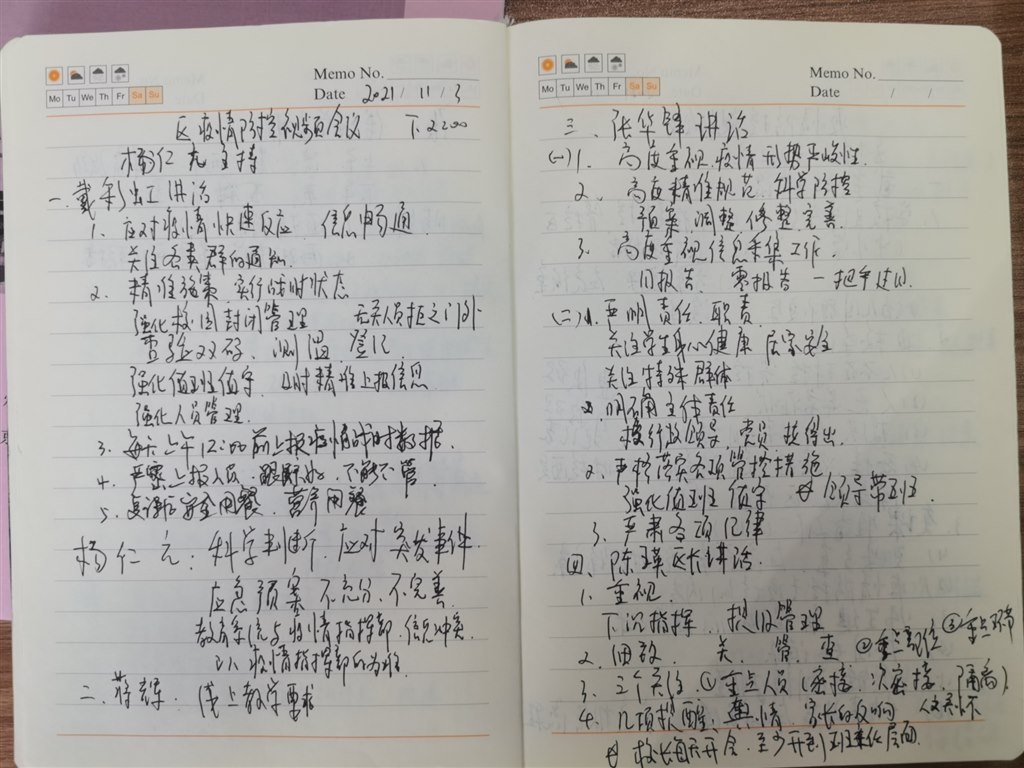 Memo No.
Mo Tu We Th Fr Sa Su
Date 2021 / 11 / 3
区疫情防控视频会议 下 2200
杨仁 主持
一. 戴 出工讲话
1. 应对疫情快速反应 信息畅通.
关注各类群的通知
2. 精准施策 实行战时状态
强化校园封闭管理 无关人员拒之门外
查验双码、测温 登记
强化值班值守 及时精准上报信息
强化人员管理.
3. 每天上午12:00前上报疫情 时数据.
4. 严禁 不管
5. 复课后安全用餐 营养用餐
杨仁元: 科学判断 应对突发事件.
应急预案 不充分、不完善.
教育系统与疫情指挥部 信息冲突
以疫情指挥部的为准
二. 蒋 . 线上教学要求
Memo No.
Mo Tu We Th Fr Sa Su
Date / /
三、张华锋讲话
(一)1. 高度重视 疫情形势严峻性.
2. 高度精准规范 科学防控
预案 调整 修整 完善.
3. 高度重视信息采集工作.
日报告 零报告 一把手过问.
(二)1. 严明责任 职责
关注学生身心健康 居家安全
关注特殊群体
明确主体责任
领导 党员
2. 严格落实各项管控措施
强化值班值守 领导带班.
3. 严肃各项纪律
四、陈瑛区长讲话.
1. 重视.
下沉指挥、 管理
2. 细致. 关、管、查 ②重点部位 ③重点环节
3. 三个关注. ①重点人员(密接、次密接、隔离)
4. 几项提醒: 舆情、家长的反响 人文关怀
校长每天开会. 至少开到班主任层面.